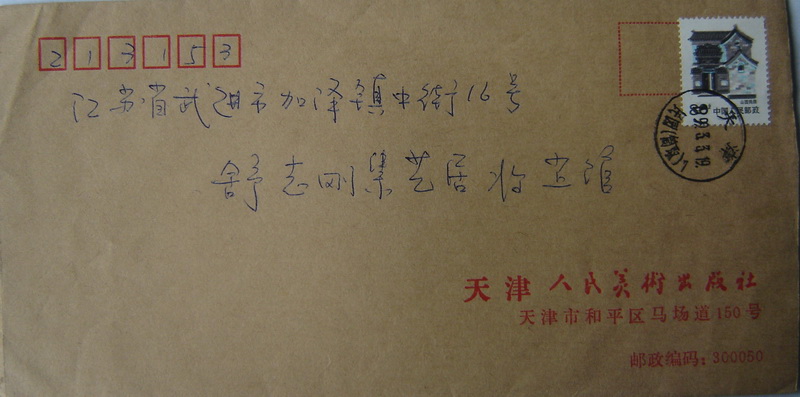 213153
中国人民邮政
天津
江苏省武进市加泽镇中街16号
舒志刚集艺居妆览馆
天津人民美術出版社
天津市和平区马场道150号
邮政编码：300050